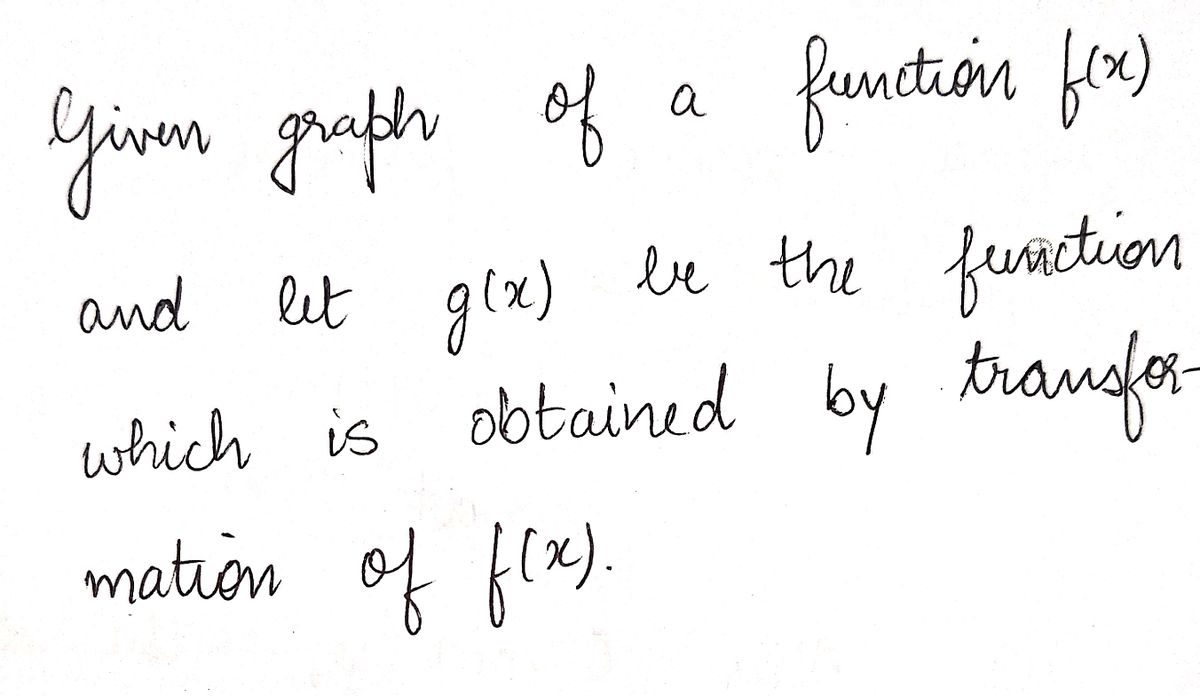 Given graph of a function f(x)
and let g(x) be the function
which is obtained by transfor-
mation of f(x).